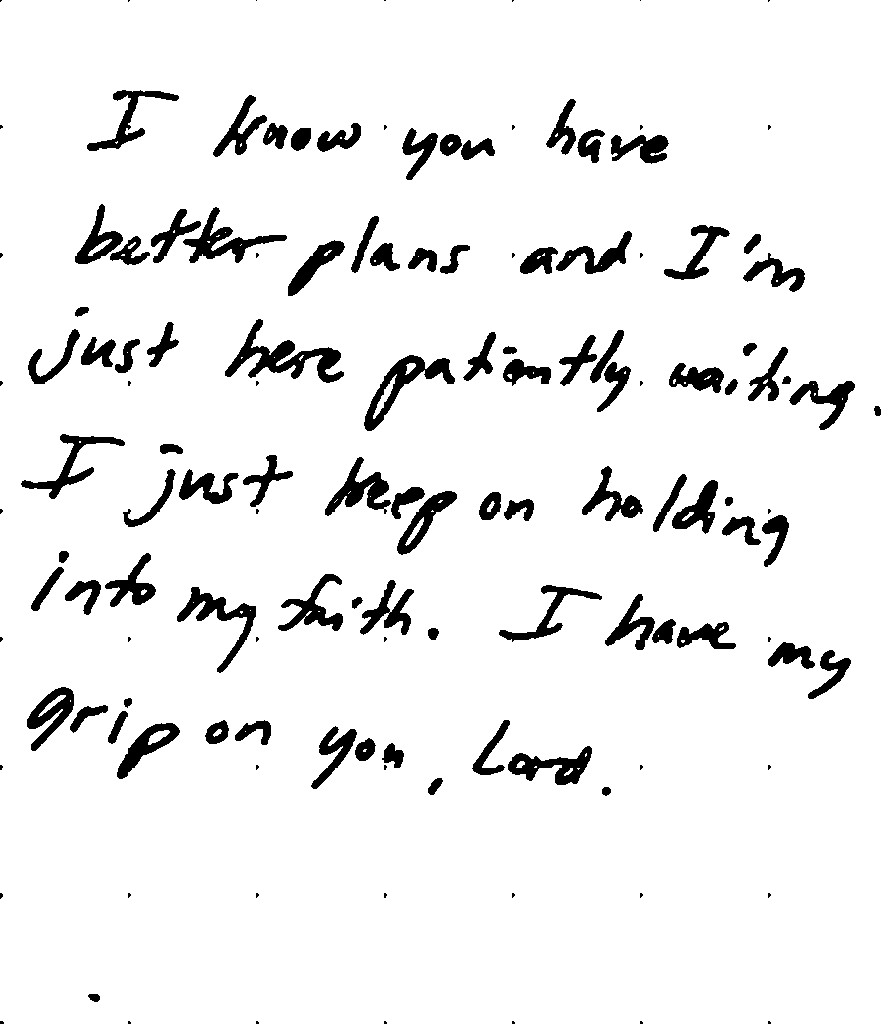 I know you have
better plans and I'm
just here patiently waiting.
I just keep on holding
into my faith. I have my
grip on you, Lord.